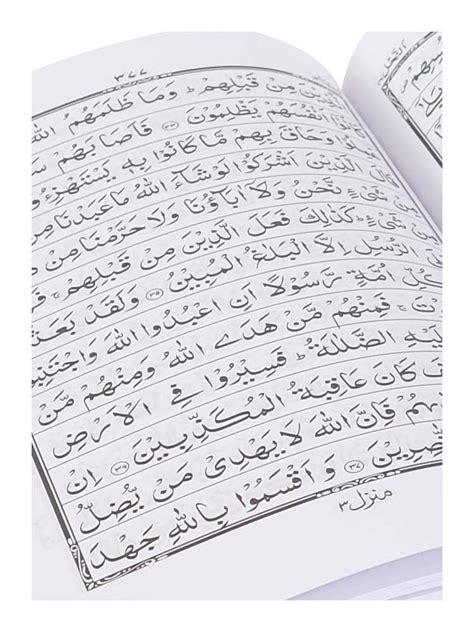 ۳۷۷
مِنْ قَبْلِهِمْ ؕ وَمَا ظَلَمَهُمُ اللّٰهُ
اَنْفُسَهُمْ يَظْلِمُوْنَ ﴿۳۳﴾ فَاَصَابَهُمْ
وَحَاقَ بِهِمْ مَّا كَانُوْا بِهٖ يَسْتَهْزِءُ
الَّذِيْنَ اَشْرَكُوْا لَوْ شَآءَ اللّٰهُ مَا عَبَدْنَا مِنْ
مِنْ شَیْءٍ نَّحْنُ وَلَاۤ اٰبَآؤُنَا وَلَا حَرَّمْنَا مِنْ
مِنْ شَیْءٍ ؕ كَذٰلِكَ فَعَلَ الَّذِيْنَ مِنْ قَبْلِهِمْ ۚ
الرُّسُلِ اِلَّا الْبَلٰغُ الْمُبِيْنُ ﴿۳۵﴾ وَلَقَدْ بَعَثْ
كُلِّ اُمَّةٍ رَّسُوْلًا اَنِ اعْبُدُوا اللّٰهَ وَاجْتَنِبُ
فَمِنْهُمْ مَّنْ هَدَی اللّٰهُ وَمِنْهُمْ مَّنْ
لَيْهِ الضَّلٰلَةُ ؕ فَسِيْرُوْا فِی الْاَرْضِ
فَ كَانَ عَاقِبَةُ الْمُكَذِّبِيْنَ ﴿۳۶﴾ اِنْ
فَاِنَّ اللّٰهَ لَا يَهْدِیْ مَنْ يُّضِلُّ
صِرِيْنَ ﴿۳۷﴾ وَاَقْسَمُوْا بِاللّٰهِ جَهْدَ
منزل۳